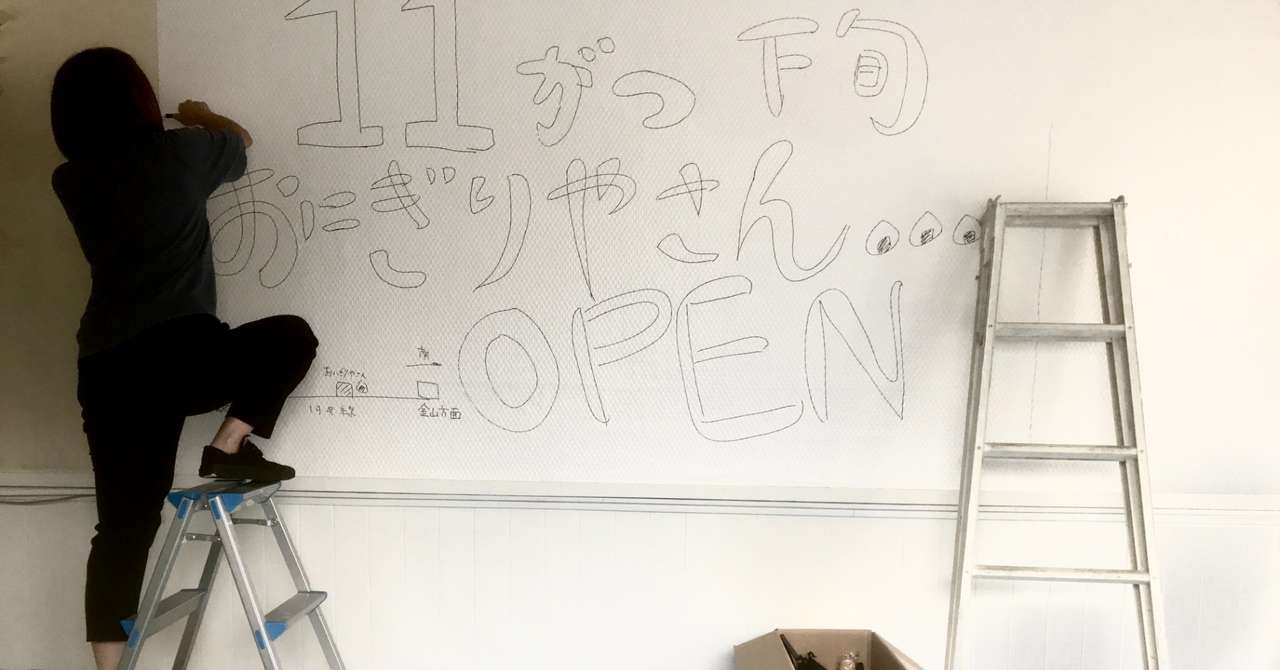 11がつ下旬
おにぎりやさん...
OPEN
おにぎりやさん
19号線
金山方面